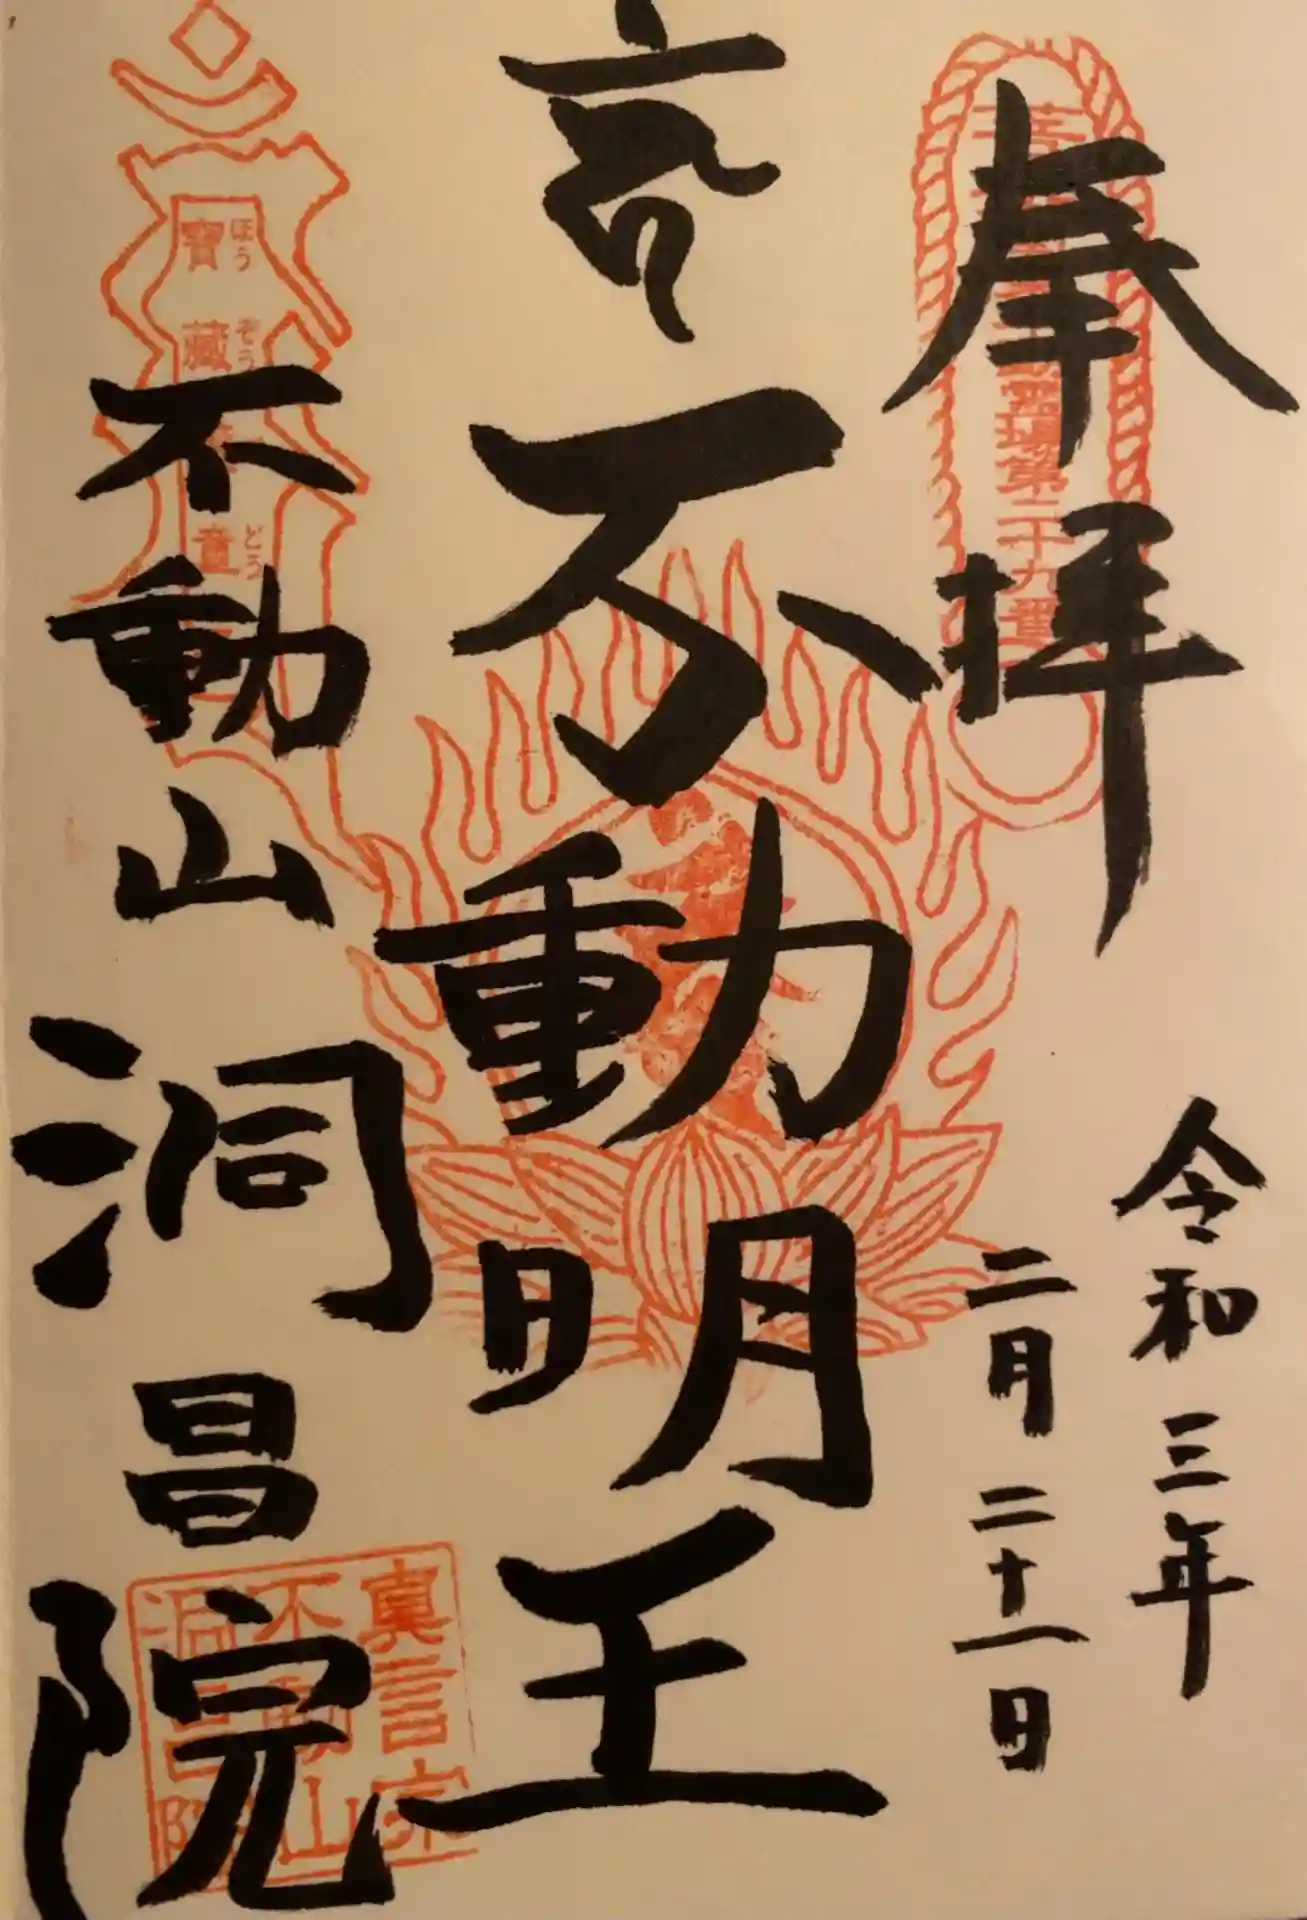 奉拝
令和三年
二月二十一日
霊場第二十九番
不動明王
寶藏
ほうぞう
童
どう
不動山洞昌院
真言宗
不動山
洞昌院